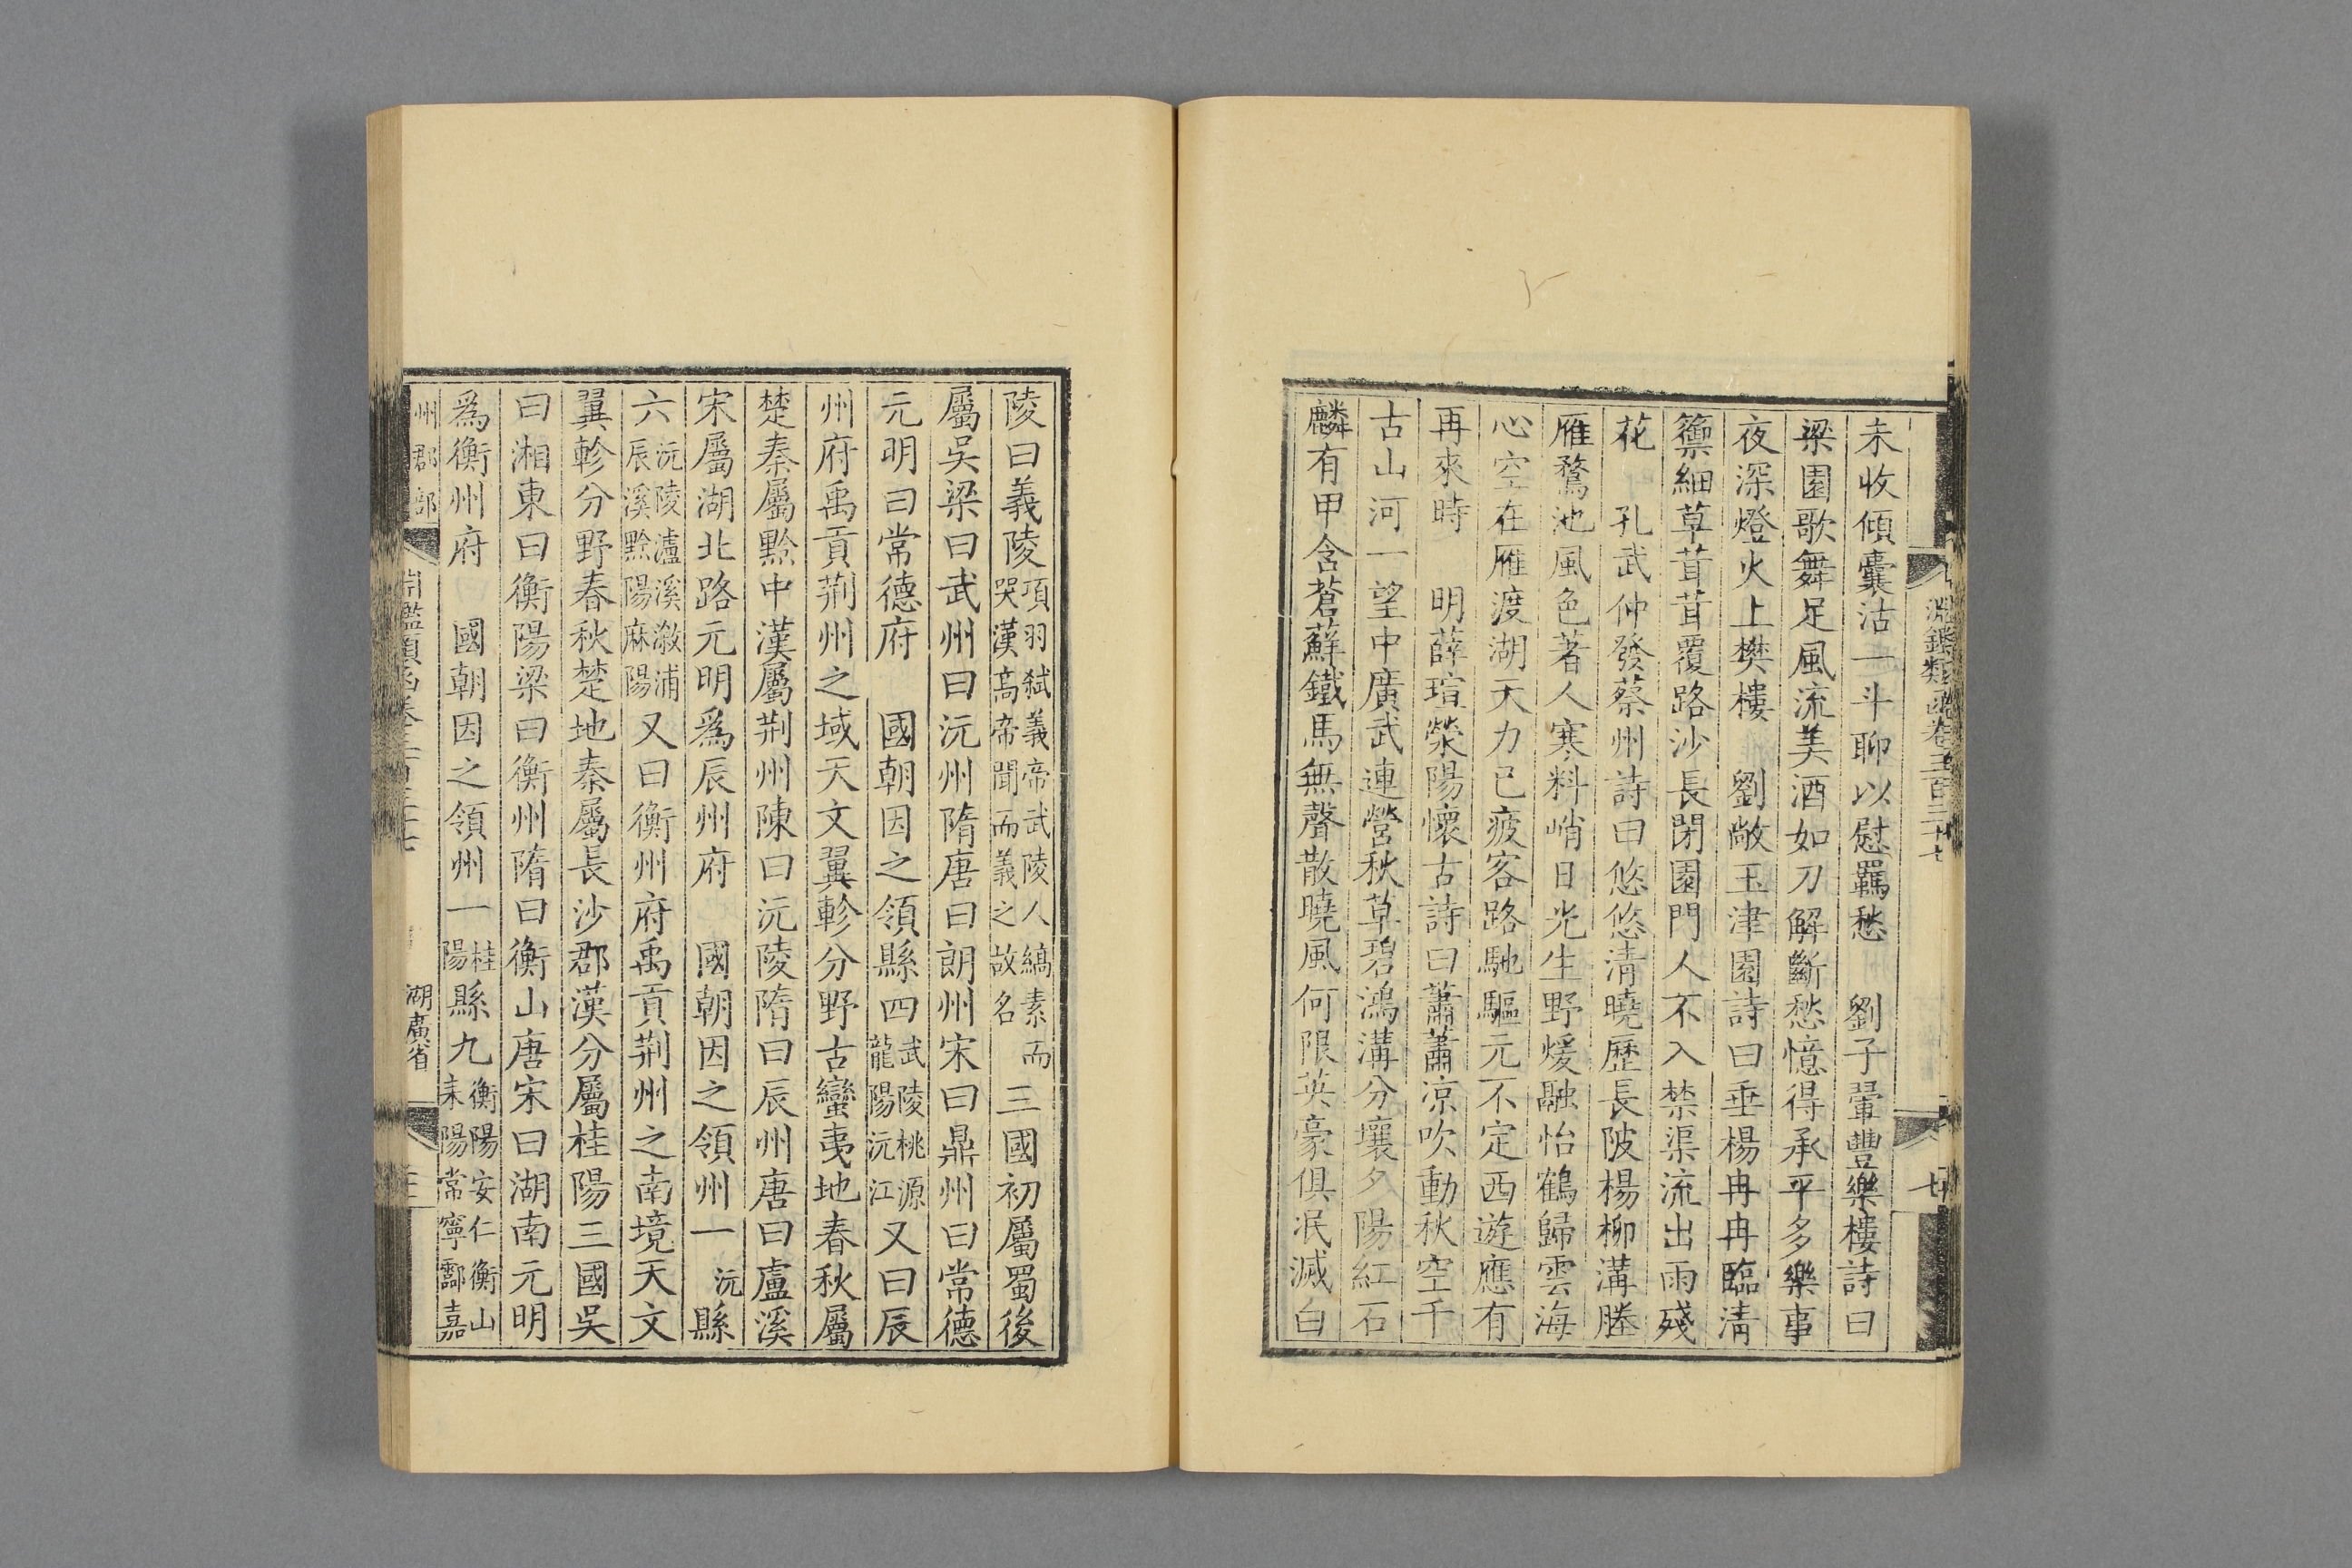 淵鑑類函卷三百三十七
七
未收傾囊沽一斗聊以慰羈愁　劉子翬豐樂樓詩曰
梁園歌舞足風流美酒如刀解斷愁憶得承平多樂事
夜深燈火上樊樓　劉敞玉津園詩曰垂楊冉冉臨清
籞細草茸茸覆路沙長閉園門人不入禁渠流出雨殘
花　孔武仲發蔡州詩曰悠悠清曉歷長陂楊柳溝塍
雁鶩池風色著人寒料峭日光生野煖融怡鶴歸雲海
心空在雁渡湖天力已疲客路馳驅元不定西遊應有
再來時　明薛瑄滎陽懷古詩曰蕭蕭凉吹動秋空千
古山河一望中廣武連營秋草碧鴻溝分壤夕陽紅石
麟有甲含蒼蘚鐵馬無聲散曉風何限英豪俱泯滅白
陵曰義陵項羽弒義帝武陵人縞素而哭漢高帝聞而義之故名三國初屬蜀後
屬吳梁曰武州曰沅州隋唐曰朗州宋曰鼎州曰常德
元明曰常德府　國朝因之領縣四武陵桃源龍陽沅江又曰辰
州府禹貢荆州之域天文翼軫分野古蠻夷地春秋屬
楚秦屬黔中漢屬荆州陳曰沅陵隋曰辰州唐曰盧溪
宋屬湖北路元明爲辰州府　國朝因之領州一沅縣
六沅陵瀘溪漵浦辰溪黔陽麻陽又曰衡州府禹貢荆州之南境天文
翼軫分野春秋楚地秦屬長沙郡漢分屬桂陽三國吳
曰湘東曰衡陽梁曰衡州隋曰衡山唐宋曰湖南元明
爲衡州府　國朝因之領州一桂陽縣九衡陽安仁衡山耒陽常寧酃嘉
州郡部
湖廣省